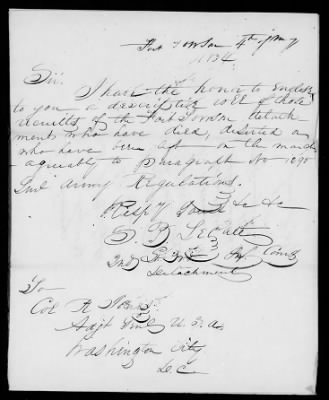 Fort Towson 4th
Sir
I have the honor to enclose
to you a descriptive roll of those
Recruits of the Fort Towson detach
ment who have died, deserted or
who have been left on the march
agreeably to Paragraph No
Genl Army Regulations.
Resp Y Yours &c &c
2nd Comg
Detachment
To
Col R Jones
Adjt Genl U.S.A.
Washington City
D.C